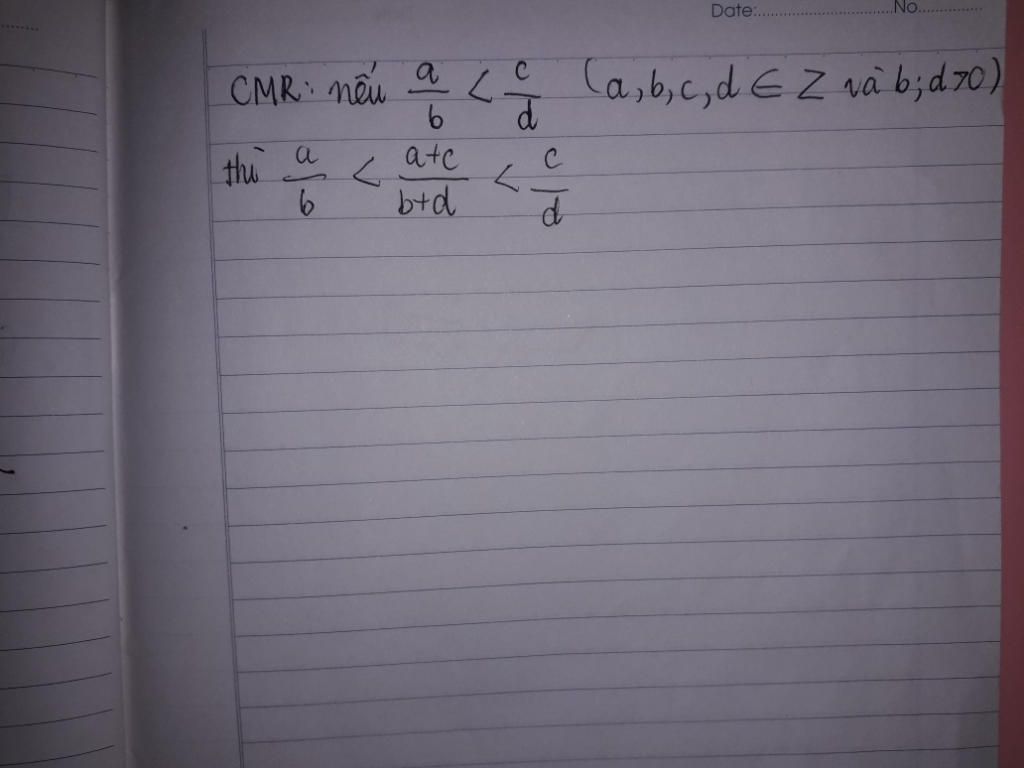 Date:................................No...............
CMR: nếu a/b < c/d (a,b,c,d ∈ Z và b;d>0)
thì a/b < a+c/b+d < c/d